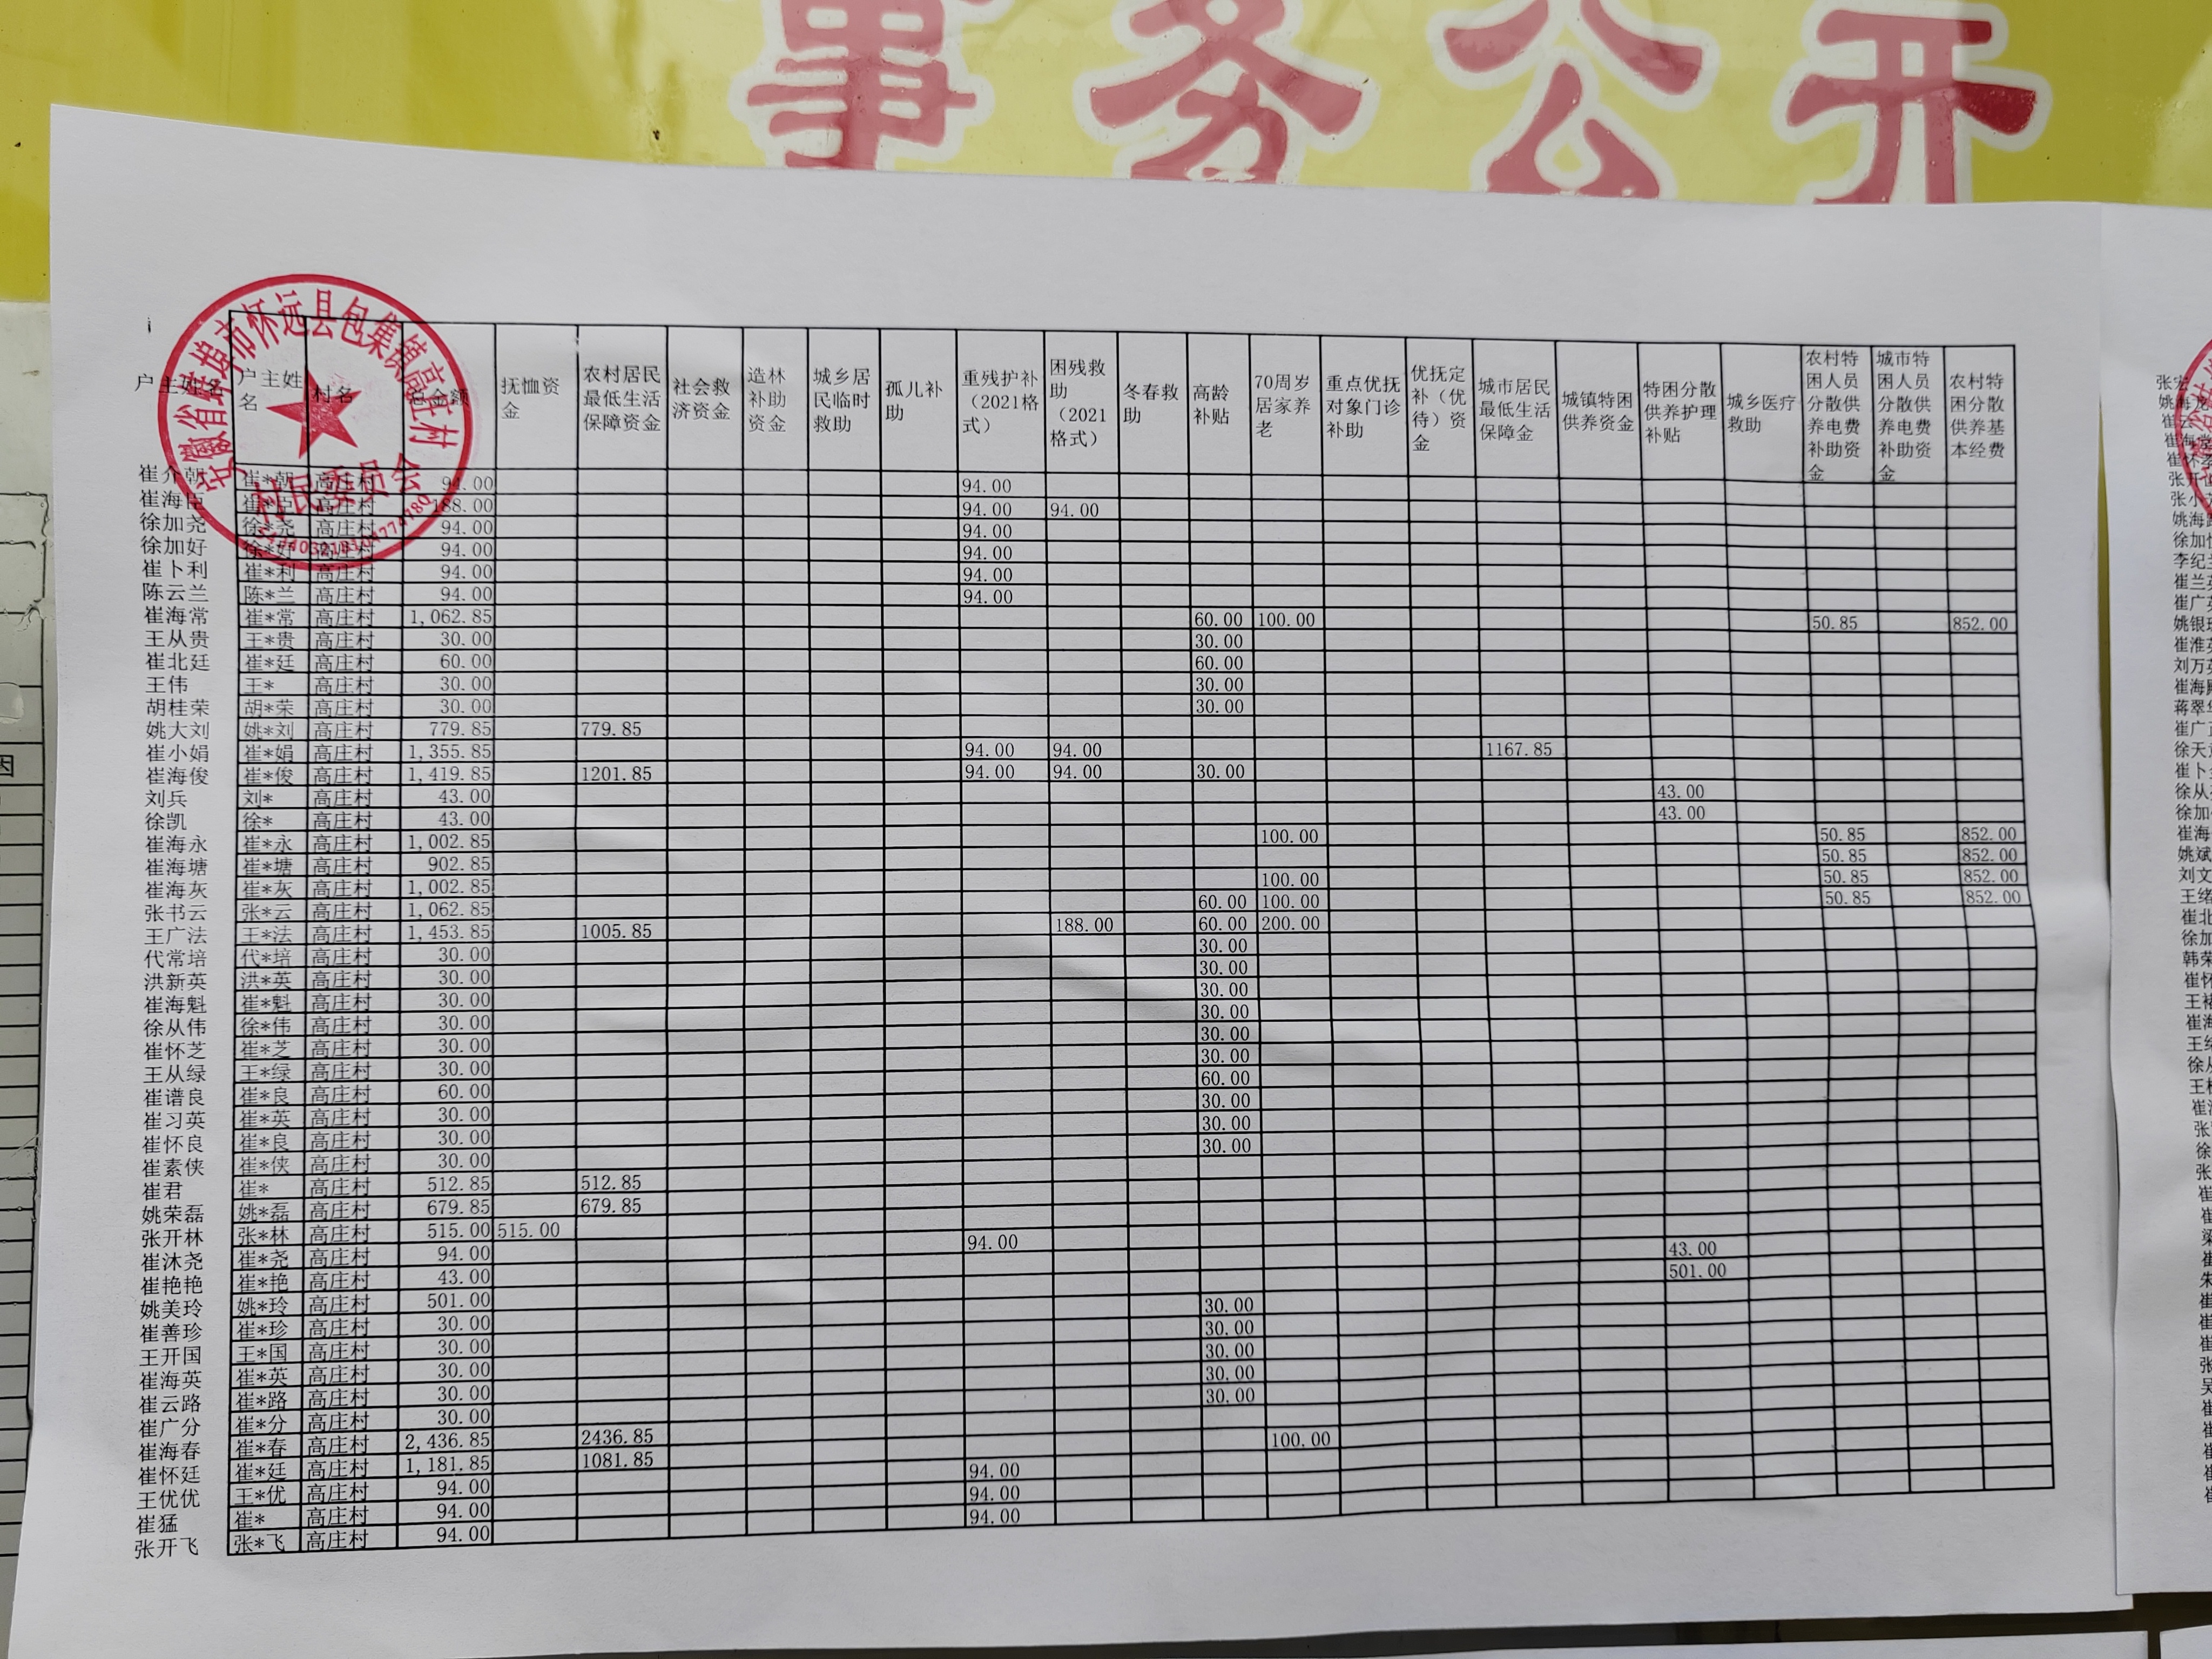 事务公开
安徽省蚌埠市怀远县包集镇高庄村
村民委员会
户主姓名 户主姓名 村名 总金额 抚恤资金 农村居民最低生活保障资金 社会救济资金 造林补助资金 城乡居民临时救助 孤儿补助 重残护补（2021格式） 困残救助（2021格式） 冬春救助 高龄补贴 70周岁居家养老 重点优抚对象门诊补助 优抚定补（优待）资金 城市居民最低生活保障金 城镇特困供养资金 特困分散供养护理补贴 城乡医疗救助 农村特困人员分散供养电费补助资金 城市特困人员分散供养电费补助资金 农村特困分散供养基本经费
崔介朝 崔*朝 高庄村 94.00 94.00
崔海臣 崔*臣 高庄村 188.00 94.00 94.00
徐加尧 徐*尧 高庄村 94.00 94.00
徐加好 徐*好 高庄村 94.00 94.00
崔卜利 崔*利 高庄村 94.00 94.00
陈云兰 陈*兰 高庄村 94.00 94.00
崔海常 崔*常 高庄村 1,062.85 60.00 100.00 50.85 852.00
王从贵 王*贵 高庄村 30.00 30.00
崔北廷 崔*廷 高庄村 60.00 60.00
王伟 王* 高庄村 30.00 30.00
胡桂荣 胡*荣 高庄村 30.00 30.00
姚大刘 姚*刘 高庄村 779.85 779.85
崔小娟 崔*娟 高庄村 1,355.85 94.00 94.00 1167.85
崔海俊 崔*俊 高庄村 1,419.85 1201.85 94.00 94.00 30.00
刘兵 刘* 高庄村 43.00 43.00
徐凯 徐* 高庄村 43.00 43.00
崔海永 崔*永 高庄村 1,002.85 100.00 50.85 852.00
崔海塘 崔*塘 高庄村 902.85 50.85 852.00
崔海灰 崔*灰 高庄村 1,002.85 100.00 50.85 852.00
张书云 张*云 高庄村 1,062.85 60.00 100.00 50.85 852.00
王广法 王*法 高庄村 1,453.85 1005.85 188.00 60.00 200.00
代常培 代*培 高庄村 30.00 30.00
洪新英 洪*英 高庄村 30.00 30.00
崔海魁 崔*魁 高庄村 30.00 30.00
徐从伟 徐*伟 高庄村 30.00 30.00
崔怀芝 崔*芝 高庄村 30.00 30.00
王从绿 王*绿 高庄村 30.00 30.00
崔谱良 崔*良 高庄村 60.00 60.00
崔习英 崔*英 高庄村 30.00 30.00
崔怀良 崔*良 高庄村 30.00 30.00
崔素侠 崔*侠 高庄村 30.00 30.00
崔君 崔* 高庄村 512.85 512.85
姚荣磊 姚*磊 高庄村 679.85 679.85
张开林 张*林 高庄村 515.00 515.00
崔沐尧 崔*尧 高庄村 94.00 94.00
崔艳艳 崔*艳 高庄村 43.00 43.00
姚美玲 姚*玲 高庄村 501.00 501.00
崔善珍 崔*珍 高庄村 30.00 30.00
王开国 王*国 高庄村 30.00 30.00
崔海英 崔*英 高庄村 30.00 30.00
崔云路 崔*路 高庄村 30.00 30.00
崔广分 崔*分 高庄村 30.00 30.00
崔海春 崔*春 高庄村 2,436.85 2436.85
崔怀廷 崔*廷 高庄村 1,181.85 1081.85 100.00
王优优 王*优 高庄村 94.00 94.00
崔猛 崔* 高庄村 94.00 94.00
张开飞 张*飞 高庄村 94.00 94.00